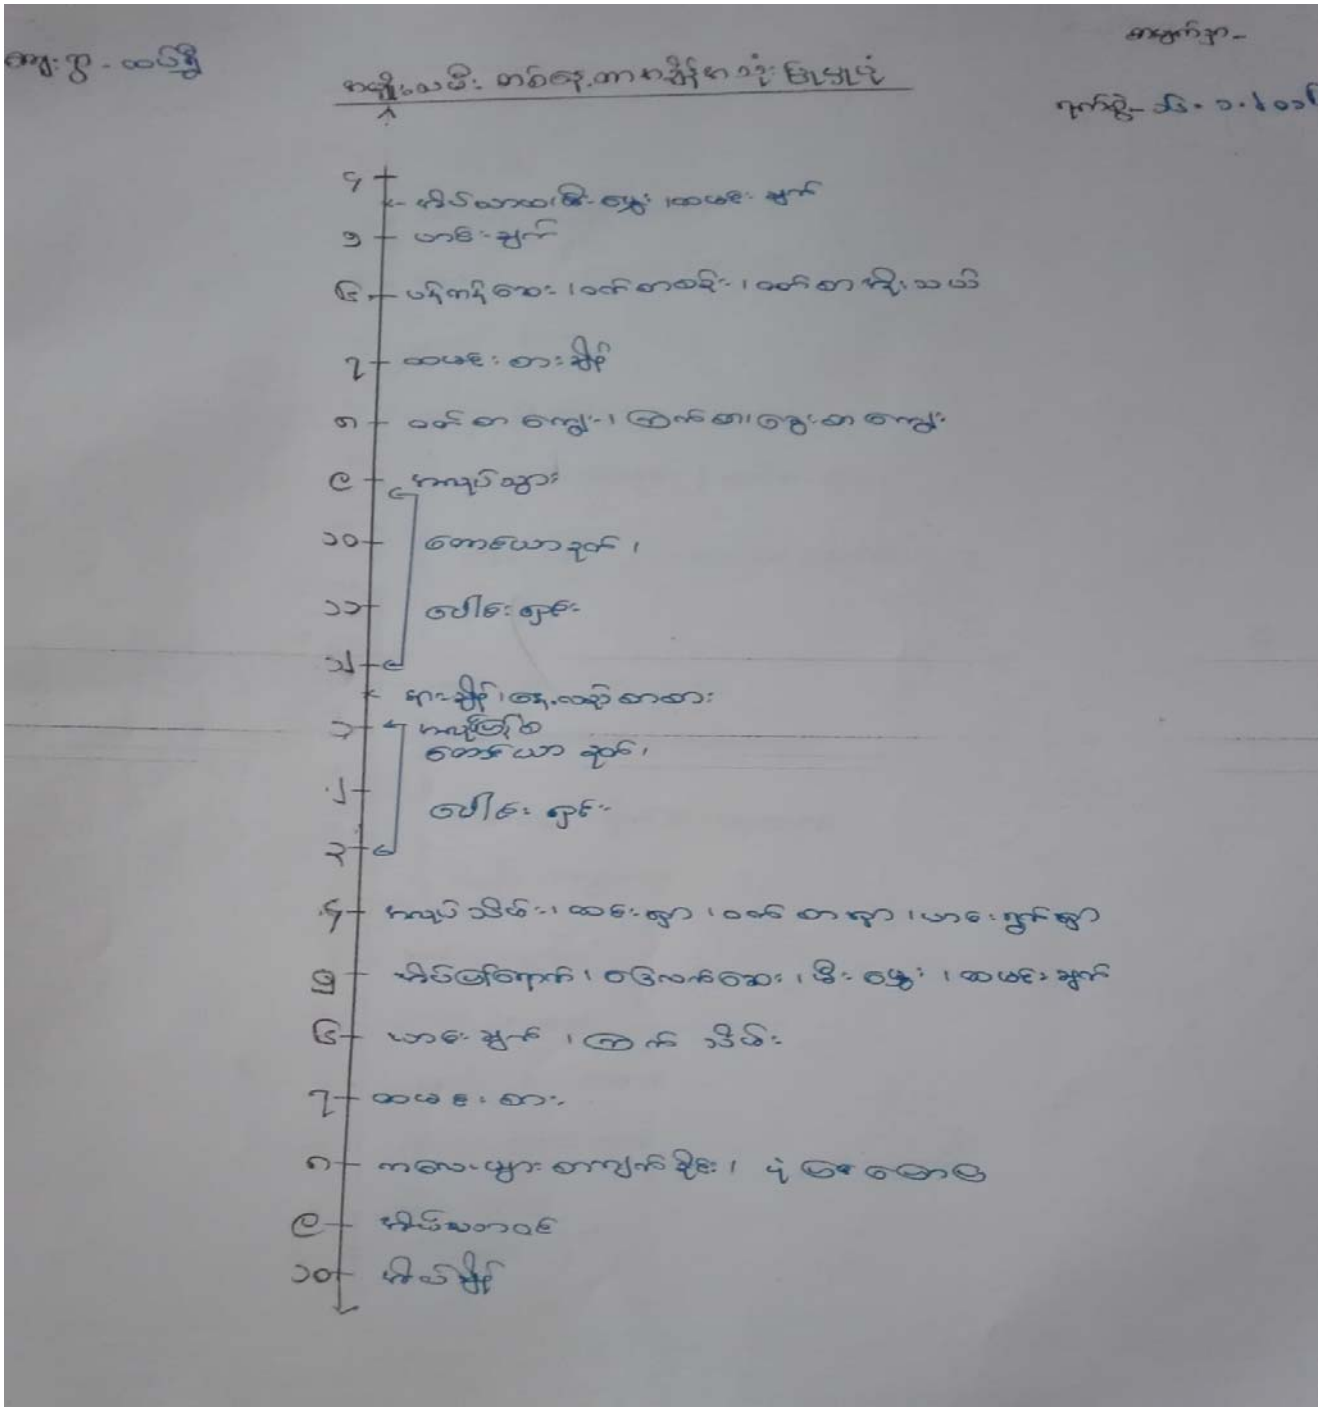 ကျေးရွာ - ထပ်ရွှီ
စာမျက်နှာ -
အမျိုးသမီး တစ်နေ့တာအချိန်အသုံးပြုမှုပုံ
ရက်စွဲ-
၄
အိပ်ယာထ၊ မီးမွှေး၊ ထမင်းချက်
၅ ဟင်းချက်
၆ ပန်ကန်ဆေး၊ ဝက်စာစဉ်း၊ ဝက်စာအိုးတယ်
၇ ထမင်းစားချိန်
၈ ဝက်စာကျွေး၊ ကြက်စာ၊ ခွေးစာကျွေး
၉ အလုပ်သွား
၁၀ တောင်ယာခုတ်၊
၁၁ ပေါင်းရှင်း
၁၂
နားချိန်၊ နေ့လည်စာစား
၁ အလုပ်ပြန်စ
တောင်ယာခုတ်၊
၂
ပေါင်းရှင်း
၃
၄ အလုပ်သိမ်း၊ ထင်းရှာ၊ ဝက်စာရှာ၊ ဟင်းရွက်ရှာ
၅ အိမ်ပြန်ရောက်၊ ခြေလက်ဆေး၊ မီးမွှေး၊ ထမင်းချက်
၆ ဟင်းချက်၊ ကြက်သိမ်း
၇ ထမင်းစား
၈ ကလေးများစာကျက်ခိုင်း၊ ပုံပြင်ပြော
၉ အိပ်ယာဝင်
၁၀ အိပ်ချိန်